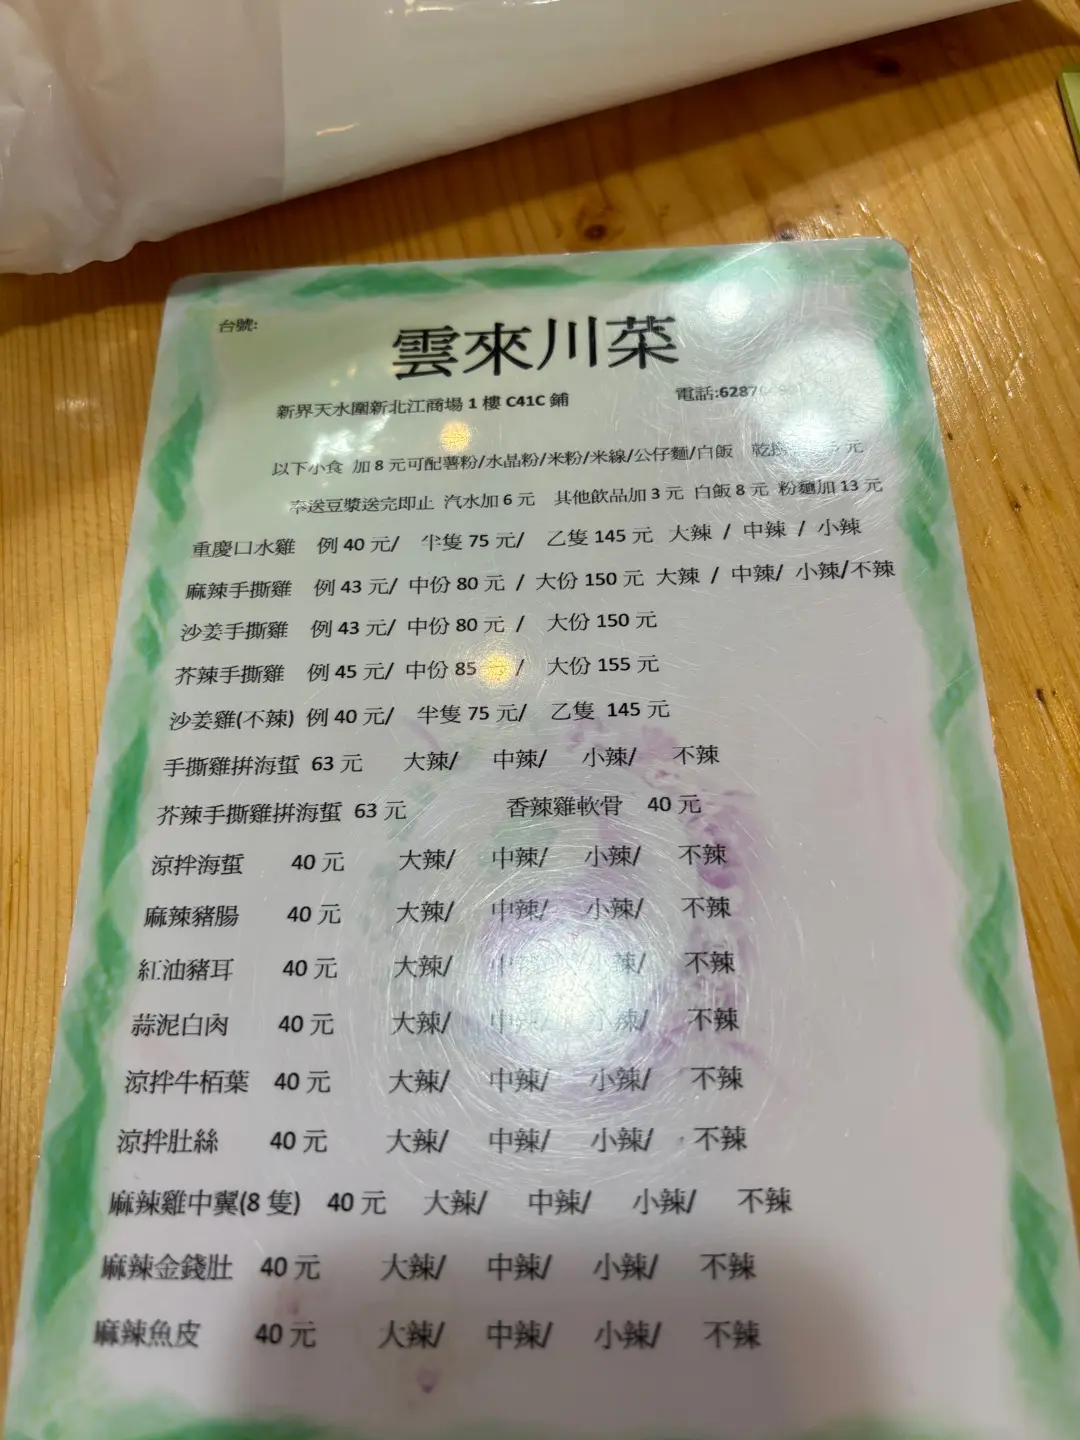 台號:
雲來川菜
新界天水圍新北江商場 1 樓 C41C 鋪
電話:6287
以下小食 加 8 元可配薯粉/水晶粉/米粉/米線/公仔麵/白飯 乾 元
奉送豆漿送完即止 汽水加 6 元 其他飲品加 3 元 白飯 8 元 粉麵加 13 元
重慶口水雞 例 40 元/ 半隻 75 元/ 乙隻 145 元 大辣 / 中辣 / 小辣
麻辣手撕雞 例 43 元/ 中份 80 元 / 大份 150 元 大辣 / 中辣/ 小辣/不辣
沙姜手撕雞 例 43 元/ 中份 80 元 / 大份 150 元
芥辣手撕雞 例 45 元/ 中份 85 / 大份 155 元
沙姜雞(不辣) 例 40 元/ 半隻 75 元/ 乙隻 145 元
手撕雞拼海蜇 63 元 大辣/ 中辣/ 小辣/ 不辣
芥辣手撕雞拼海蜇 63 元 香辣雞軟骨 40 元
涼拌海蜇 40 元 大辣/ 中辣/ 小辣/ 不辣
麻辣豬腸 40 元 大辣/ 中辣/ 小辣/ 不辣
紅油豬耳 40 元 大辣/ 中辣/ 小辣/ 不辣
蒜泥白肉 40 元 大辣/ 中辣/ 小辣/ 不辣
涼拌牛栢葉 40 元 大辣/ 中辣/ 小辣/ 不辣
涼拌肚絲 40 元 大辣/ 中辣/ 小辣/ 不辣
麻辣雞中翼(8 隻) 40 元 大辣/ 中辣/ 小辣/ 不辣
麻辣金錢肚 40 元 大辣/ 中辣/ 小辣/ 不辣
麻辣魚皮 40 元 大辣/ 中辣/ 小辣/ 不辣